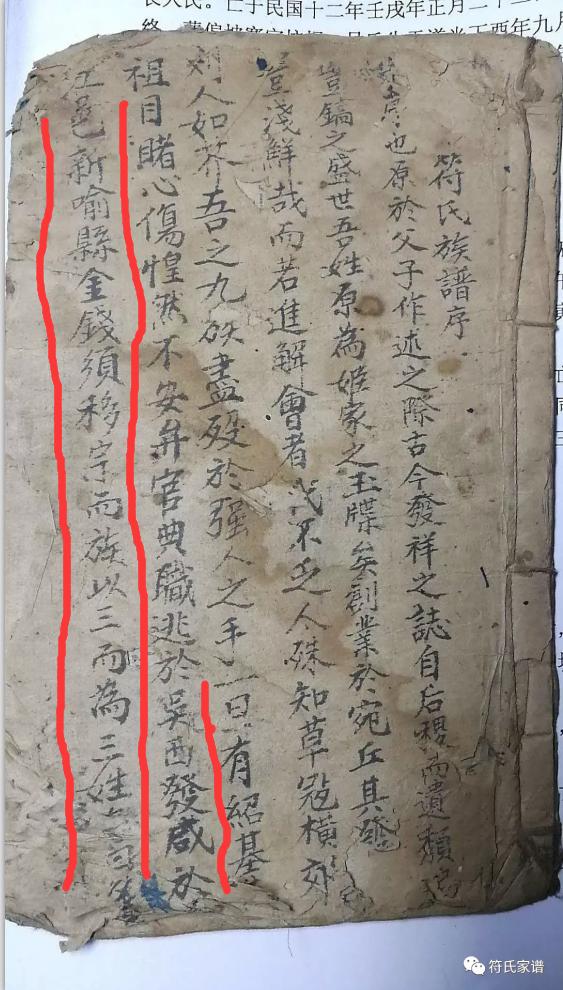 長人民。亡于民國十二年壬戌年正月二十二
符氏族譜序
也原於父子作述之際古今發祥之誌自后稷而遺類
豐鎬之盛世吾姓原為姬家之玉牒矣創業於宛丘其發
登淺鮮哉而若進解會者代不乏人殊知草冦橫
人如芥吾之九族盡殁於强人之手一旦有紹基
祖目睹心傷惶然不安弁官典職逃於吳西發咸於
江邑新喻縣金錢須移宗而族以三而為三姓
符氏家谱